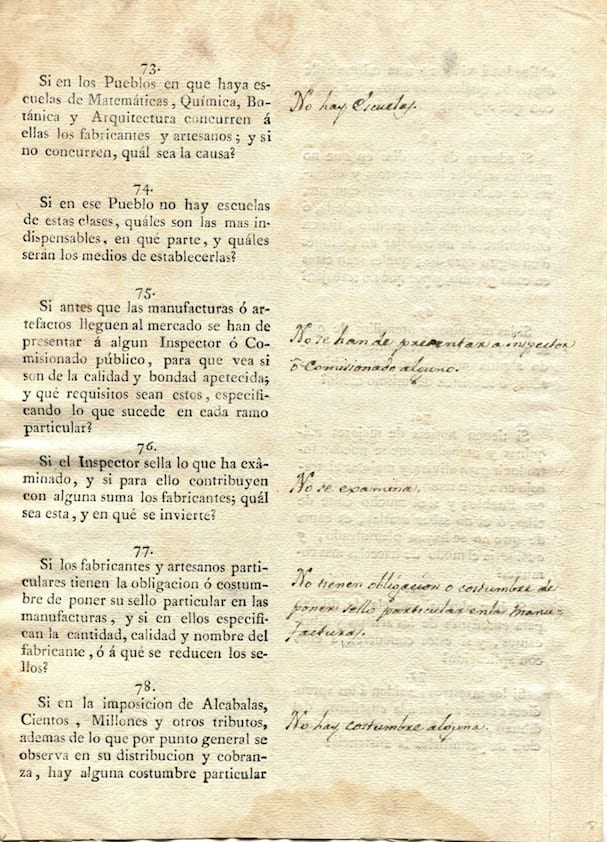 73.
Si en los Pueblos en que haya es-
cuelas de Matemáticas, Química, Bo-
tánica y Arquitectura concurren á
ellas los fabricantes y artesanos; y si
no concurren, quál sea la causa?
No hay Escuelas.
74.
Si en ese Pueblo no hay escuelas
de estas clases, quáles son las mas in-
dispensables, en qué parte, y quáles
serán los medios de establecerlas?
75.
Si antes que las manufacturas ó ar-
tefactos lleguen al mercado se han de
presentar á algun Inspector ó Co-
misionado público, para que vea si
son de la calidad y bondad apetecida;
y qué requisitos sean estos, especifi-
cando lo que sucede en cada ramo
particular?
No se han de presentar a inspector
ō Comisionado alguno.
76.
Si el Inspector sella lo que ha exâ-
minado, y si para ello contribuyen
con alguna suma los fabricantes; quál
sea esta, y en qué se invierte?
No se examina.
77.
Si los fabricantes y artesanos parti-
culares tienen la obligacion ó costum-
bre de poner su sello particular en las
manufacturas, y si en ellos especifi-
can la cantidad, calidad y nombre del
fabricante, ó á qué se reducen los se-
llos?
No tienen obligacion o costumbre de
poner sello particular enla manu=
facturas.
78.
Si en la imposicion de Alcabalas,
Cientos, Millones y otros tributos,
ademas de lo que por punto general se
observa en su distribucion y cobran-
za, hay alguna costumbre particular
No hay costumbre alguna.